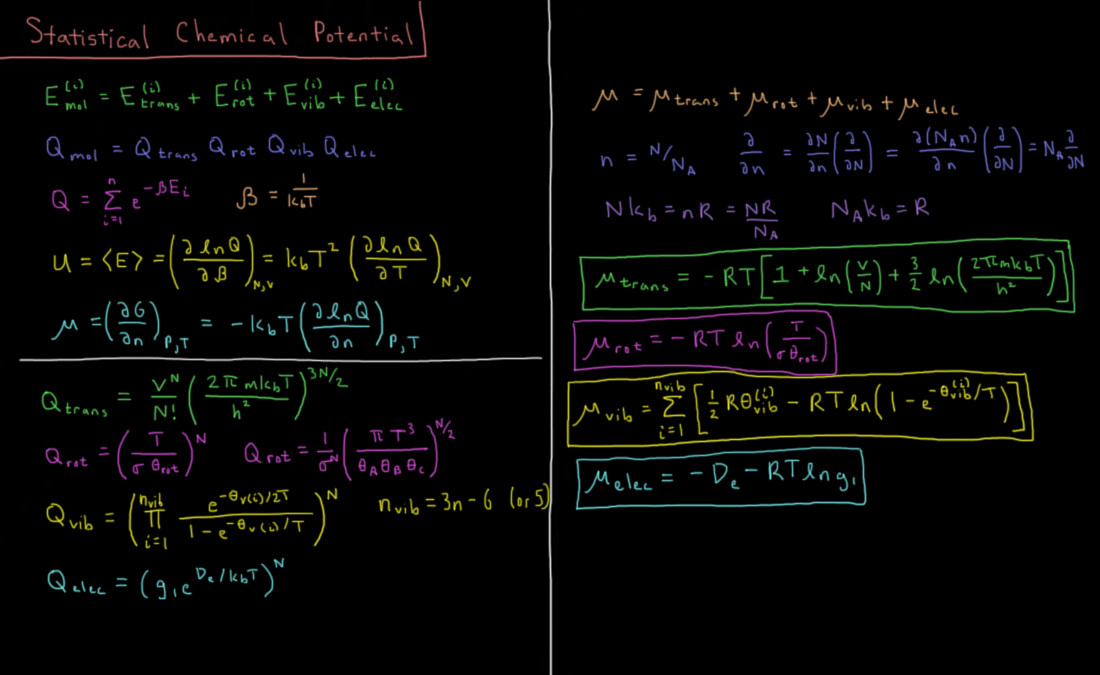 Statistical Chemical Potential
E_mol^(i) = E_trans^(i) + E_rot^(i) + E_vib^(i) + E_elec^(i)
Q_mol = Q_trans Q_rot Q_vib Q_elec
Q = Σ_{i=1}^{n} e^{-βE_i}    β = 1/(k_b T)
U = ⟨E⟩ = (∂ln Q/∂β)_{N,V} = k_b T² (∂ln Q/∂T)_{N,V}
μ = (∂G/∂n)_{P,T} = -k_b T (∂ln Q/∂n)_{P,T}
Q_trans = V^N/N! (2πmk_bT/h²)^{3N/2}
Q_rot = (T/(σ θ_rot))^N    Q_rot = 1/σ^N (πT³/(θ_A θ_B θ_C))^{N/2}
Q_vib = (∏_{i=1}^{n_vib} e^{-θ_v(i)/2T}/(1-e^{-θ_v(i)/T}))^N    n_vib = 3n-6 (or 5)
Q_elec = (g_1 e^{D_e/k_bT})^N
μ = μ_trans + μ_rot + μ_vib + μ_elec
n = N/N_A    ∂/∂n = ∂N/∂n (∂/∂N) = ∂(N_A n)/∂n (∂/∂N) = N_A ∂/∂N
Nk_b = nR = NR/N_A    N_A k_b = R
μ_trans = -RT[1 + ln(V/N) + 3/2 ln(2πmk_bT/h²)]
μ_rot = -RT ln(T/(σθ_rot))
μ_vib = Σ_{i=1}^{n_vib} [1/2 Rθ_vib^(i) - RT ln(1-e^{-θ_vib^(i)/T})]
μ_elec = -D_e - RT ln g_1